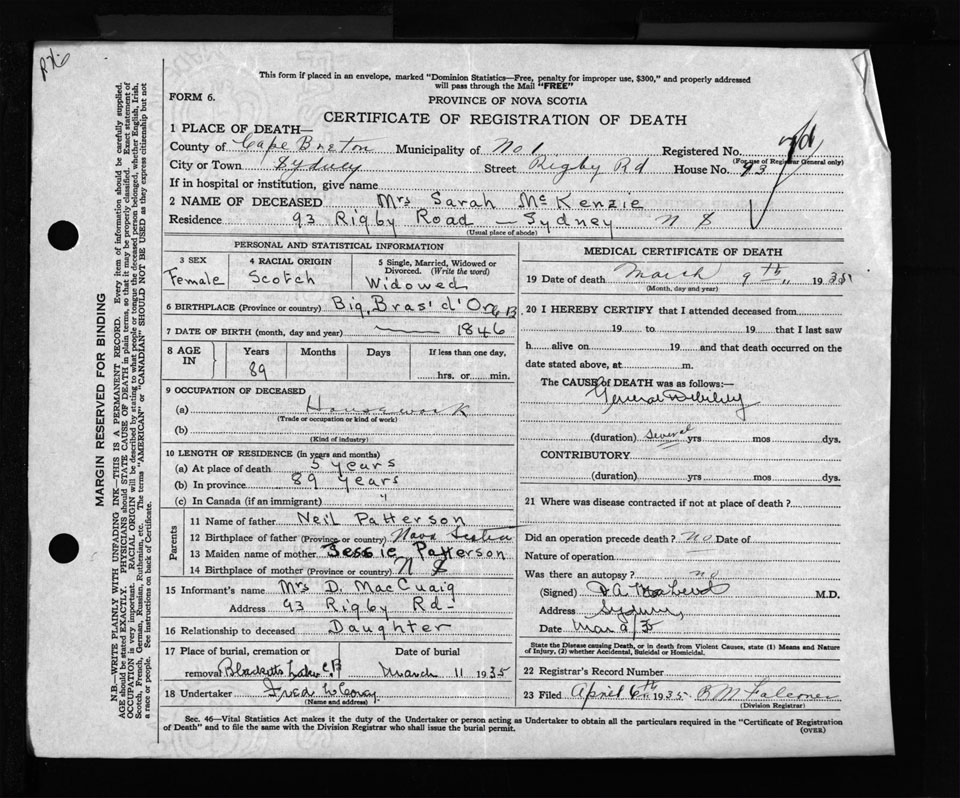 This form if placed in an envelope, marked "Dominion Statistics—Free, penalty for improper use, $300," and properly addressed
will pass through the Mail "FREE"
FORM 6.
PROVINCE OF NOVA SCOTIA
CERTIFICATE OF REGISTRATION OF DEATH
1 PLACE OF DEATH—
County of Cape Breton Municipality of No 1 Registered No.
(For use of Registrar General only)
City or Town Sydney Street Rigby Rd House No. 93
If in hospital or institution, give name
2 NAME OF DECEASED Mrs Sarah McKenzie
Residence 93 Rigby Road — Sydney N S
(Usual place of abode)
PERSONAL AND STATISTICAL INFORMATION
3 SEX 4 RACIAL ORIGIN 5 Single, Married, Widowed or
Divorced. (Write the word)
Female Scotch Widowed
6 BIRTHPLACE (Province or country) Big Bras' d'Or C B
7 DATE OF BIRTH (month, day and year) 1846
8 AGE IN Years Months Days If less than one day,
89 hrs. or min.
9 OCCUPATION OF DECEASED
(a) Housework
(Trade or occupation or kind of work)
(b)
(Kind of industry)
10 LENGTH OF RESIDENCE (in years and months)
(a) At place of death 5 years
(b) In province 89 years
(c) In Canada (if an immigrant) "
Parents
11 Name of father Neil Patterson
12 Birthplace of father (Province or country) Nova Scotia
13 Maiden name of mother Jessie Patterson
14 Birthplace of mother (Province or country) N S
15 Informant's name Mrs D. MacCuaig
Address 93 Rigby Rd-
16 Relationship to deceased Daughter
17 Place of burial, cremation or Date of burial
removal Blacketts Lake C.B March 11 1935
18 Undertaker Fred
(Name and address)
MEDICAL CERTIFICATE OF DEATH
19 Date of death March 9th 1935
(Month, day and year)
20 I HEREBY CERTIFY that I attended deceased from
19 to 19 that I last saw
h alive on 19 and that death occurred on the
date stated above, at m.
The CAUSE of DEATH was as follows:—
General Debility
(duration) Several yrs mos dys.
CONTRIBUTORY
(duration) yrs mos dys.
21 Where was disease contracted if not at place of death?
Did an operation precede death? no Date of
Nature of operation
Was there an autopsy? no
(Signed) M.D.
Address Sydney
Date Mar 9/35
State the Disease causing Death, or in death from Violent Causes, state (1) Means and Nature
of Injury, (2) whether Accidental, Suicidal or Homicidal.
22 Registrar's Record Number
23 Filed April 6th 1935 B M Falconer
(Division Registrar)
Sec. 46—Vital Statistics Act makes it the duty of the Undertaker or person acting as Undertaker to obtain all the particulars required in the "Certificate of Registration
of Death" and to file the same with the Division Registrar who shall issue the burial permit.
(OVER)
MARGIN RESERVED FOR BINDING
N.B.—WRITE PLAINLY WITH UNFADING INK—THIS IS A PERMANENT RECORD. Every item of information should be carefully supplied.
AGE should be stated EXACTLY. PHYSICIANS should STATE CAUSE OF DEATH in plain terms, so that it may be properly classified. Exact statement of
OCCUPATION is very important. RACIAL ORIGIN will be described by stating to what people or tongue the deceased person belonged, whether English, Irish,
Scotch, French, German, Russian, Ruthenian, etc. The terms "AMERICAN" or "CANADIAN" SHOULD NOT BE USED as they express citizenship but not
a race or people. See instructions on back of Certificate.